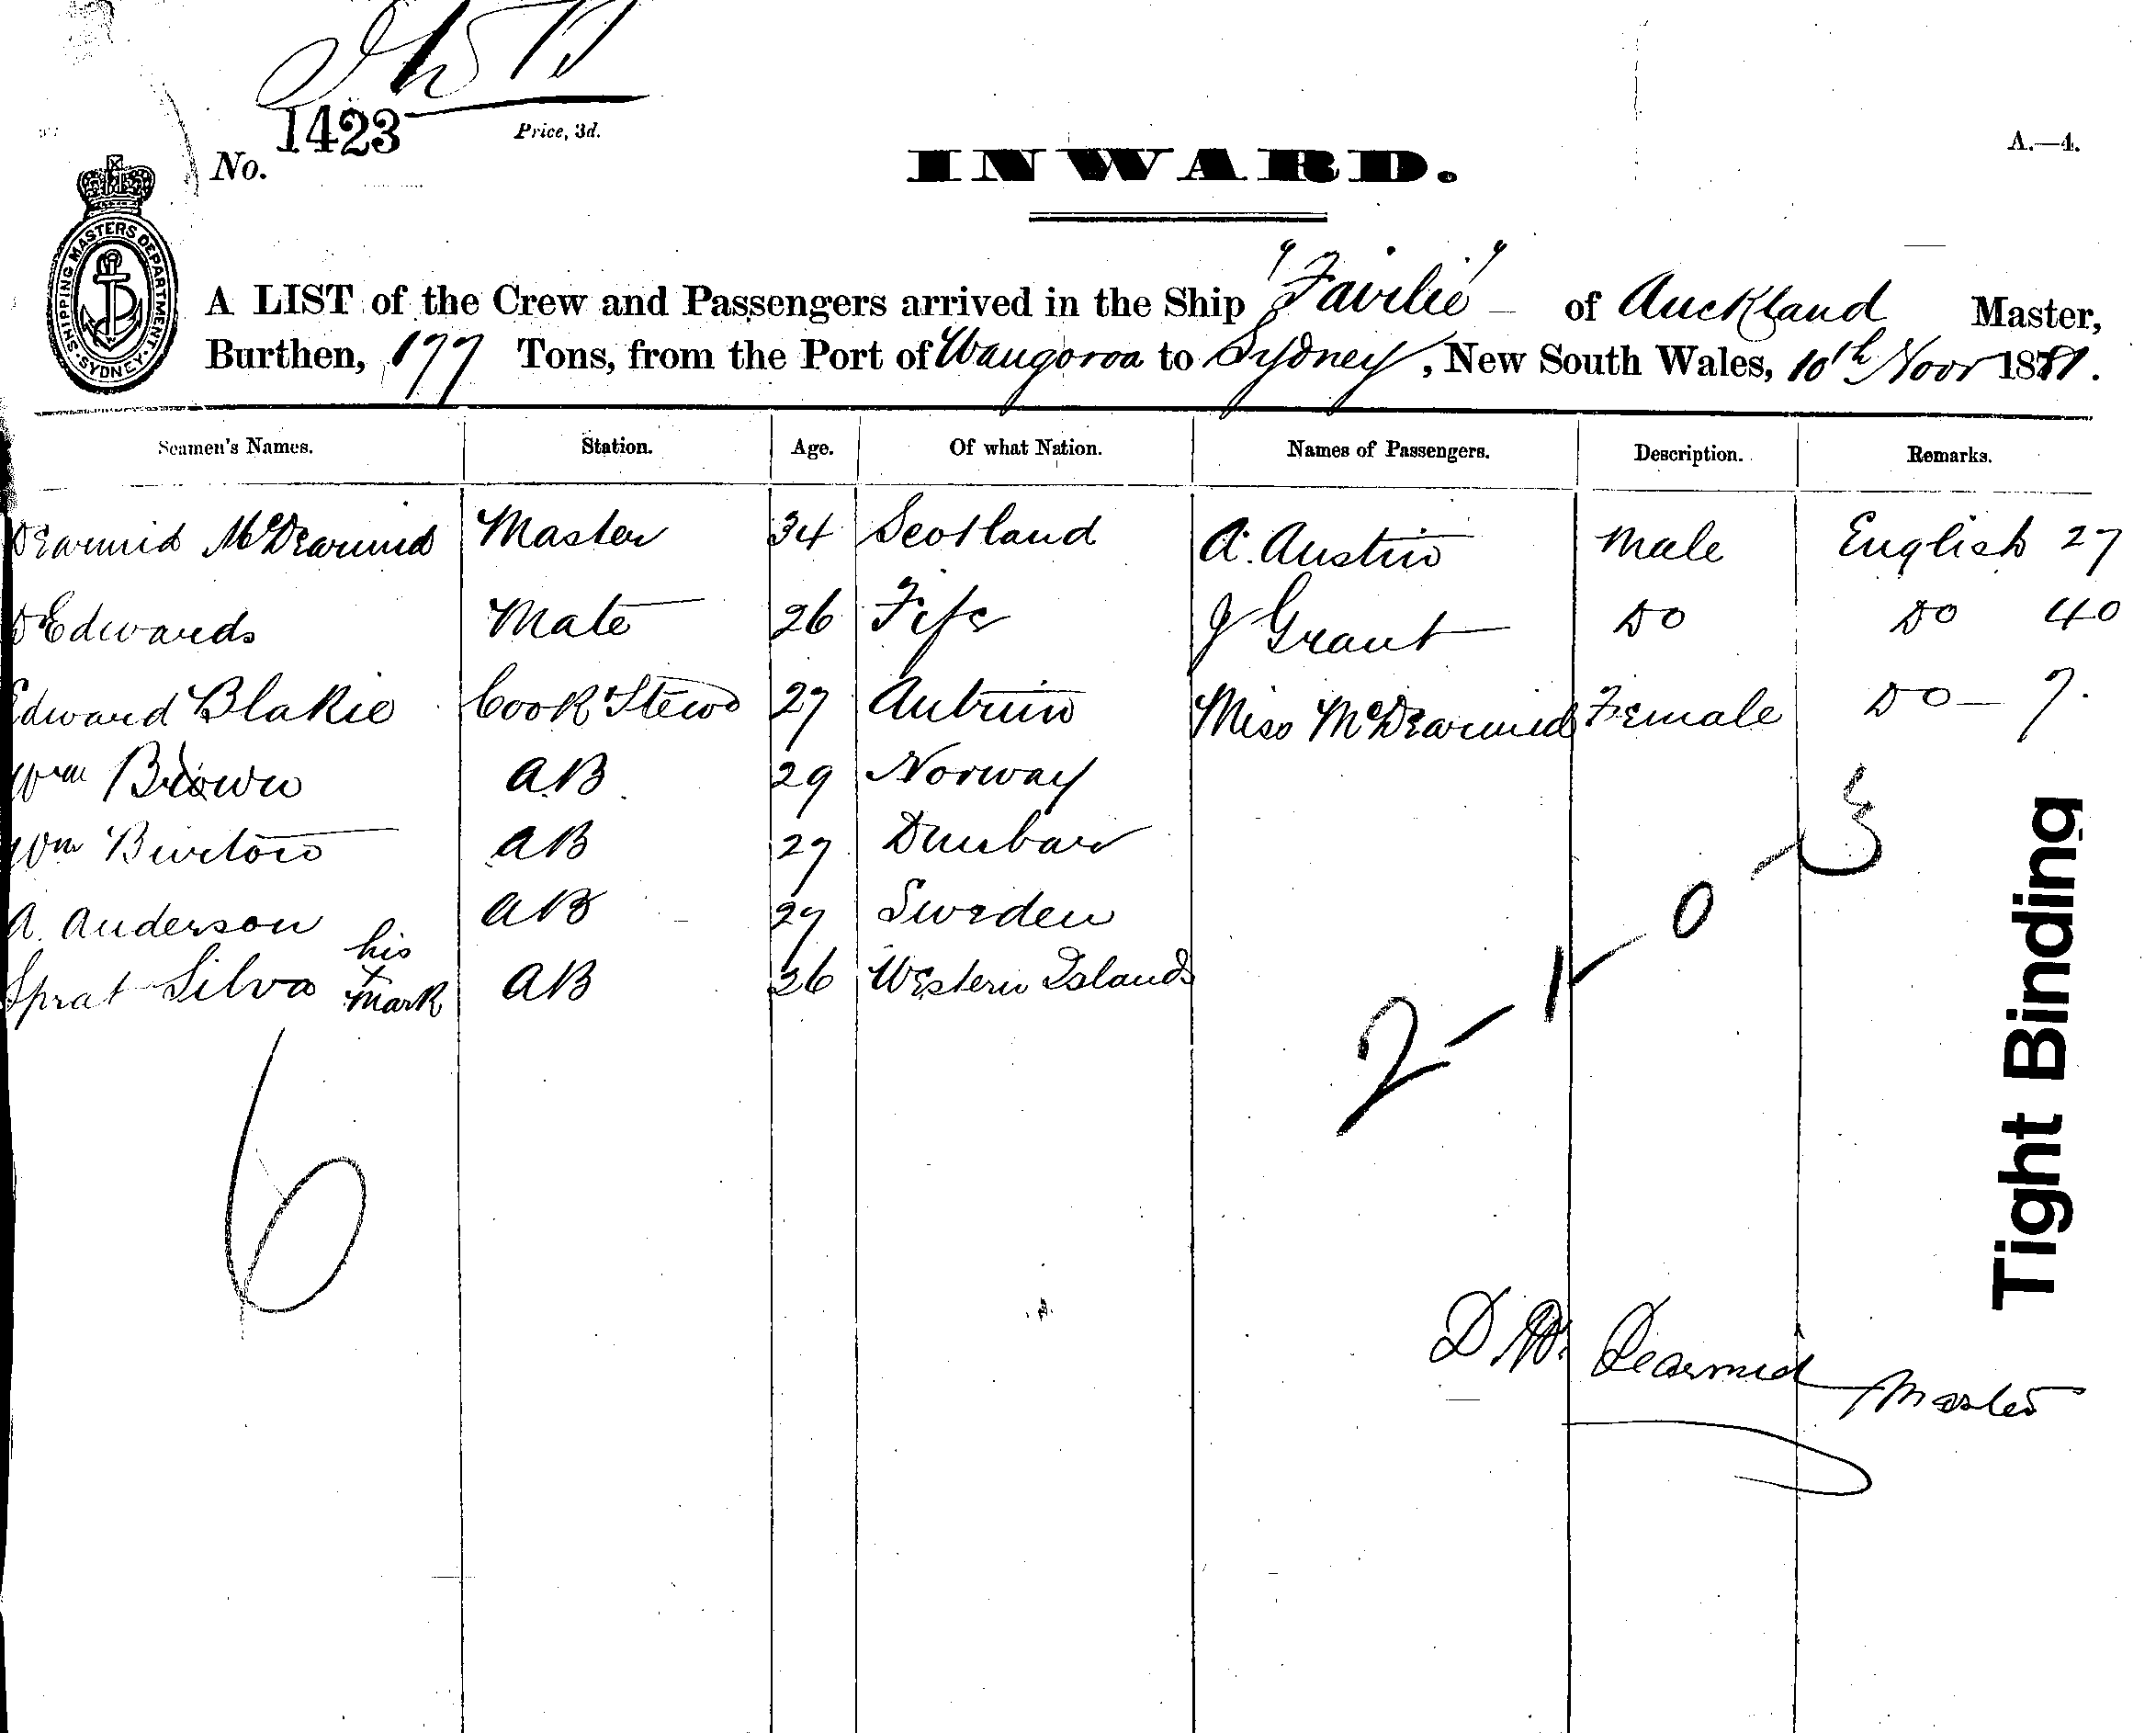 1423
Price, 3d.
No.
INWARD.
A.—4.
SHIPPING MASTERS DEPARTMENT. SYDNEY.
A LIST of the Crew and Passengers arrived in the Ship "Favilié" of Auckland Master,
Burthen, 177 Tons, from the Port of Wangoroa to Sydney, New South Wales, 10th Novr 1881.
Seamen's Names. Station. Age. Of what Nation. Names of Passengers. Description. Remarks.
Dearmid McDearmid Master 34 Scotland A. Austin Male English 27
D Edwards Mate 26 Fife J Grant Do Do 40
Edward Blakie Cook & Stewd 27 Antrim Miss McDearmid Female Do — 7.
Wm Brown AB 29 Norway
Wm Burton AB 27 Dunbar
A. Anderson AB 27 Sweden
Sprat Silva his x mark AB 36 Western Islands
2 – 1 – 0 – 3
6
D Mc Dearmid Master
Tight Binding